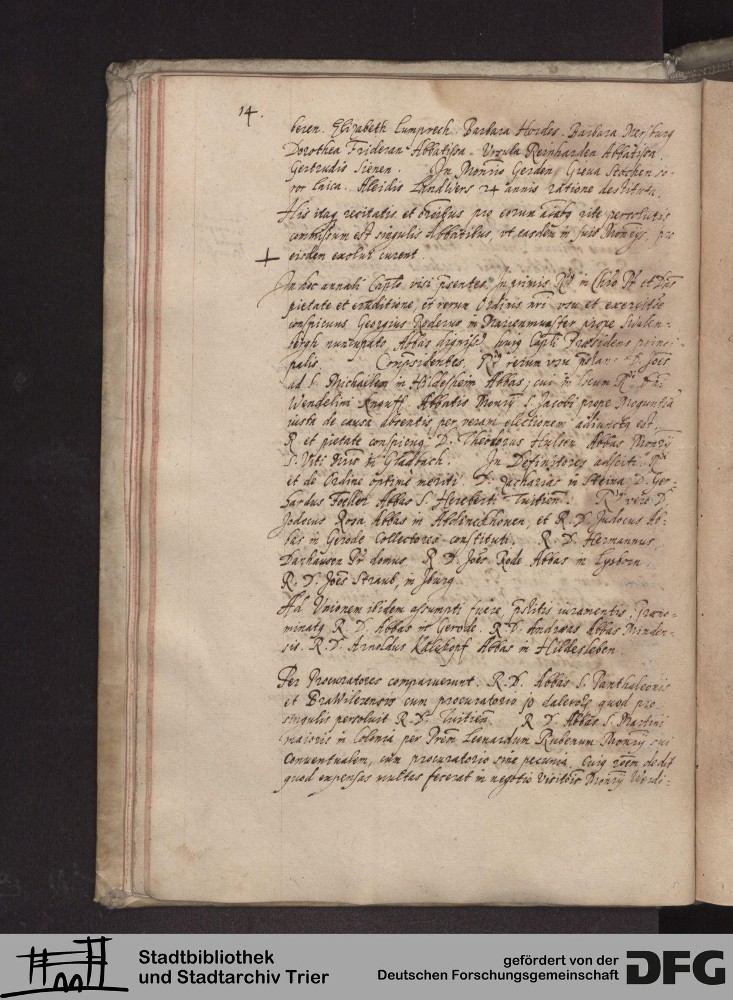 14.
beren. Elizabeth Lumprech. Barbara Hordes. Barbara Mersburg
Dorothea Frideran Abbatissa. Vrsula Reinharden Abbatissa.
Gertrudis Sienen. In Monrio Gerden Greua Stotthen so-
ror laica. Aleidis Landwers 24 annis ratione destituta.
His itaq recitatis et oibus pro eorum aiabus rite persolutis
commissum est singulis Abbatibus, vt easdem in suis Monrijs, pro
+ eisdem exolui curent.
In hoc annali Caplo visi pñtes, Inprimis Rdus in Chro Pr et Dns
pietate et eruditione, et rerum Ordinis nri vsu et exercitio
conspicuus Georgius Roderus in Marienmunster prope Swalen-
bergh nuncupato Abbas digniss. huiq Capli Praesidens princi-
palis. Compsidentes, Rdus rerum vsu D. Joes
ad S. Michaelem in Hildesheim Abbas, cui in locum Rdi Dni
Wendelini Knauff Abbatis Monrij S. Jacobi prope Moguntia
iusta de causa absentis per veram electionem adiunctus est.
R. et pietate conspicuq D. Theodorus Hulsen Abbas Monrij
S. Viti in Gladbach. In Definitores adsciti Rdi
et de Ordine optime meriti D. Zacharias in Steina D. Ger-
hardus Foeller Abbas S. Hereberti Tuitien. Rdi vero D.
Jodocus Rosa Abbas in Abdinckhouen, et R. D. Judocus Ab-
bas in Gerode Collectores constituti. R. D. Hermannus
Darhausen Pr domus R. D. Joes Rode Abbas in Lysborn
R. D. Joes Straub, in Jburg.
Ad Vnionem ibidem assumpti fuere, pstitis iuramentis, Praeno-
minatq R. D. Abbas in Gerode. R. D. Andreas Abbas Minden-
sis. R. D. Arnoldus Kalekopf Abbas in Hildesleben.
Per Procuratores comparuerunt. R. D. Abbas S. Panthaleonis
et Brawilerensis cum procuratorio 10 daleros quod pro
singulis persoluit R. D. Tuitien. R. D. Abbas S. Martini
maioris in Colonia per Frem Leonardum Rubenum Monrij sui
Conuentualem, cum procuratorio sine pecunia. Cuiq roem dedit
quod expensas multas fecerat in negotio visitois Monrij Werdi-
Stadtbibliothek
und Stadtarchiv Trier
gefördert von der
Deutschen Forschungsgemeinschaft
DFG